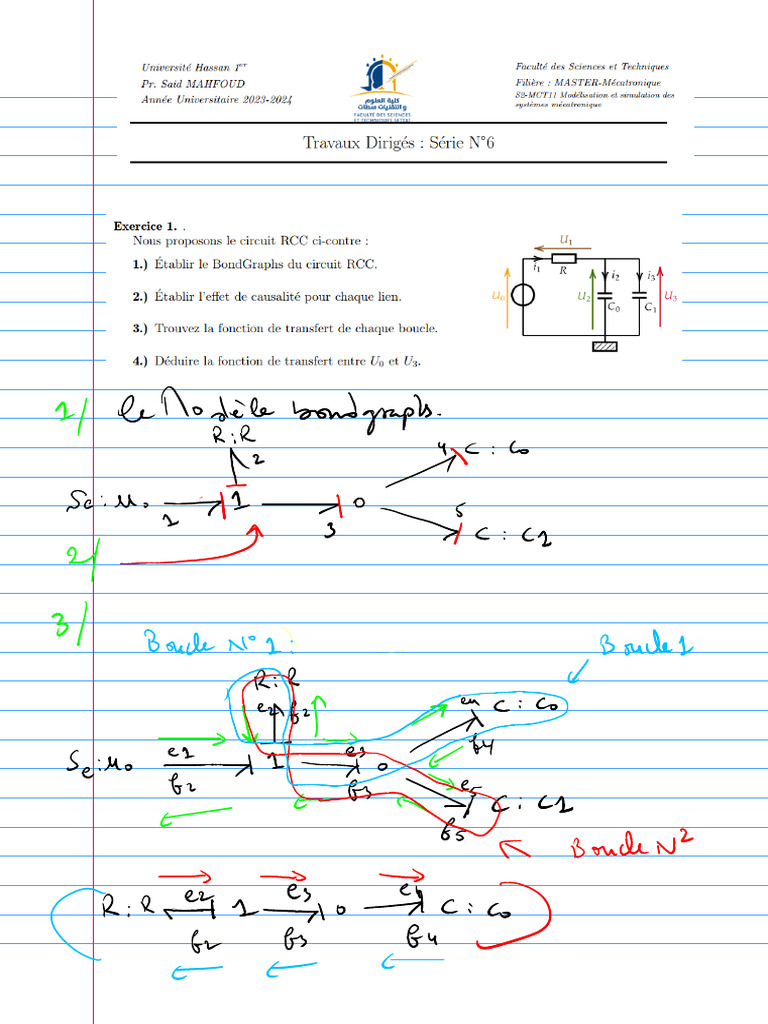 Université Hassan 1er
Pr. Said MAHFOUD
Année Universitaire 2023-2024
كلية العلوم
و التقنيات سطات
FACULTÉ DES SCIENCES
ET TECHNIQUES SETTAT
Faculté des Sciences et Techniques
Filière : MASTER-Mécatronique
S2-MCT11 Modélisation et simulation des
systèmes mécatronique
Travaux Dirigés : Série N°6
Exercice 1. .
Nous proposons le circuit RCC ci-contre :
1.) Établir le BondGraphs du circuit RCC.
2.) Établir l'effet de causalité pour chaque lien.
3.) Trouvez la fonction de transfert de chaque boucle.
4.) Déduire la fonction de transfert entre U0 et U3.
U1
i1 R i2 i3
U0 U2 C0 C1 U3
1/ le Modèle bondgraphs.
R : R
2 4 C : C0
Se : u0 1 1 3 0
5 C : C1
2/
3/
Boucle N° 1 : Boucle 1
R : R
e2 f2 e4 C : C0
Se : u0 e1 f2 1 e3 f3 0 f4
e5 f5 C : C1
Boucle N2
R : R e2 1 e3 0 e4 C : C0
f2 f3 f4